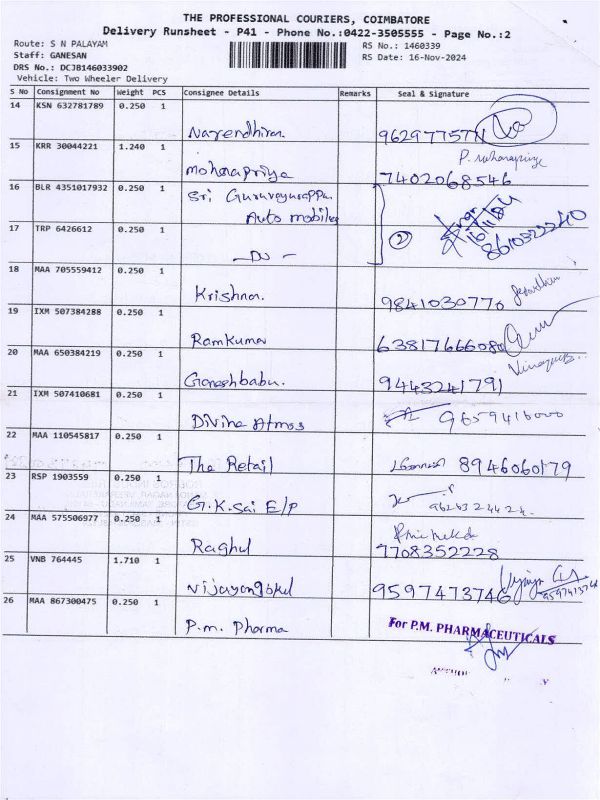 THE PROFESSIONAL COURIERS, COIMBATORE
Delivery Runsheet - P41 - Phone No.:0422-3505555 - Page No.:2
Route: S N PALAYAM
RS No.: 1460339
Staff: GANESAN
RS Date: 16-Nov-2024
DRS No.: DCJB146033902
Vehicle: Two Wheeler Delivery
S No Consignment No Weight PCS Consignee Details Remarks Seal & Signature
14 KSN 632781789 0.250 1
Narendhiran. 9629775771
15 KRR 30044221 1.240 1
Mohanapriya 7402068546
16 BLR 4351017932 0.250 1 Sri Guruvayurappa
Auto mobiles
16/11/24
17 TRP 6426612 0.250 1
-Do- 2
18 MAA 705559412 0.250 1
Krishna. 9841030770
19 IXM 507384288 0.250 1
Ramkumar
20 MAA 650384219 0.250 1
Ganeshbabu. 9443241791
21 IXM 507410681 0.250 1
Divine Atmos 9659416000
22 MAA 110545817 0.250 1
The Retail 8946060179
23 RSP 1903559 0.250 1
G.K.Sai E/P
24 MAA 575506977 0.250 1
Raghul 7708352228
25 VNB 764445 1.710 1
Vijayangokul 9597473746
26 MAA 867300475 0.250 1
P.m. Pharma For P.M. PHARMACEUTICALS